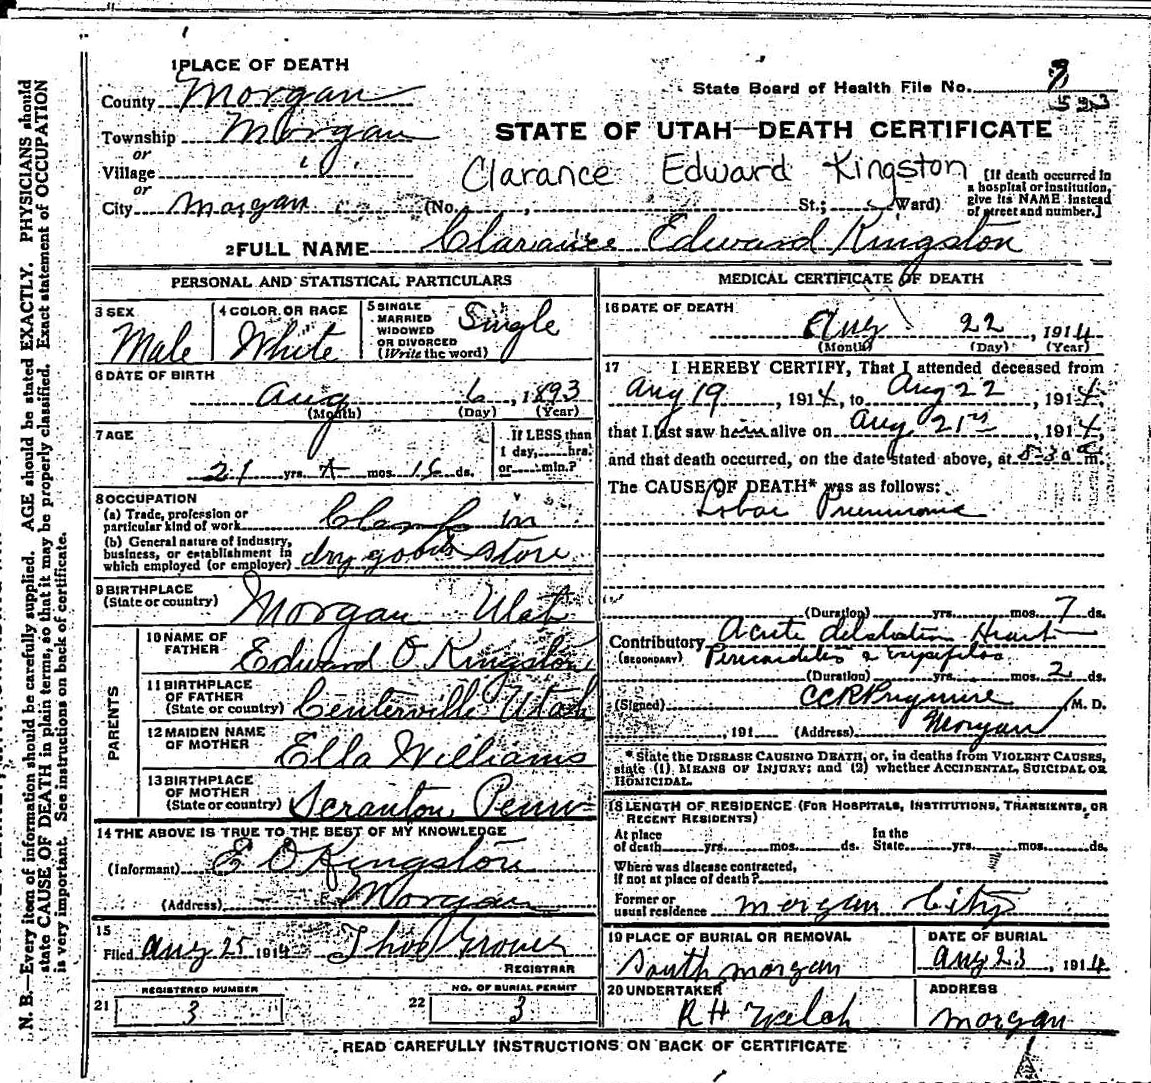 1 PLACE OF DEATH
County Morgan
Township Morgan
or
Village
or
City Morgan (No. St.; Ward)
State Board of Health File No.
STATE OF UTAH—DEATH CERTIFICATE
Clarance Edward Kingston
[If death occurred in
a hospital or institution,
give its NAME instead
of street and number.]
2 FULL NAME Clarance Edward Kingston
PERSONAL AND STATISTICAL PARTICULARS
3 SEX
Male
4 COLOR OR RACE
White
5 SINGLE
MARRIED
WIDOWED
OR DIVORCED
(Write the word)
Single
6 DATE OF BIRTH
Aug 6, 1893
(Month) (Day) (Year)
7 AGE
21 yrs. mos. ds.
If LESS than
1 day, hrs.
or min.?
8 OCCUPATION
(a) Trade, profession or
particular kind of work in
(b) General nature of industry,
business, or establishment in
which employed (or employer) dry goods store
9 BIRTHPLACE
(State or country) Morgan Utah
PARENTS
10 NAME OF
FATHER Edward O Kingston
11 BIRTHPLACE
OF FATHER
(State or country) Centerville Utah
12 MAIDEN NAME
OF MOTHER Ella Williams
13 BIRTHPLACE
OF MOTHER
(State or country) Scranton, Penn
14 THE ABOVE IS TRUE TO THE BEST OF MY KNOWLEDGE
(Informant) E O Kingston
(Address) Morgan
15
Filed Aug 25 1914 Thos Grover
REGISTRAR
21 REGISTERED NUMBER
3
22 NO. OF BURIAL PERMIT
3
MEDICAL CERTIFICATE OF DEATH
16 DATE OF DEATH
Aug 22, 1914
(Month) (Day) (Year)
17 I HEREBY CERTIFY, That I attended deceased from
Aug 19, 1914, to Aug 22, 1914,
that I last saw him alive on Aug 21st, 1914,
and that death occurred, on the date stated above, at m.
The CAUSE OF DEATH* was as follows:
Lobar Pneumonia
(Duration) yrs. mos. 7 ds.
Contributory Acute Heart
(SECONDARY) Pericarditis
(Duration) yrs. mos. 2 ds.
(Signed) M. D.
, 191 (Address) Morgan
*State the DISEASE CAUSING DEATH, or, in deaths from VIOLENT CAUSES,
state (1) MEANS OF INJURY; and (2) whether ACCIDENTAL, SUICIDAL OR
HOMICIDAL.
18 LENGTH OF RESIDENCE (FOR HOSPITALS, INSTITUTIONS, TRANSIENTS, OR
RECENT RESIDENTS)
At place
of death yrs. mos. ds.
In the
State yrs. mos. ds.
Where was disease contracted,
if not at place of death?
Former or
usual residence Morgan City
19 PLACE OF BURIAL OR REMOVAL
South Morgan
DATE OF BURIAL
Aug 23, 1914
20 UNDERTAKER
R H Welch
ADDRESS
Morgan
READ CAREFULLY INSTRUCTIONS ON BACK OF CERTIFICATE
N. B.—Every item of information should be carefully supplied. AGE should be stated EXACTLY. PHYSICIANS should
state CAUSE OF DEATH in plain terms, so that it may be properly classified. Exact statement of OCCUPATION
is very important. See instructions on back of certificate.